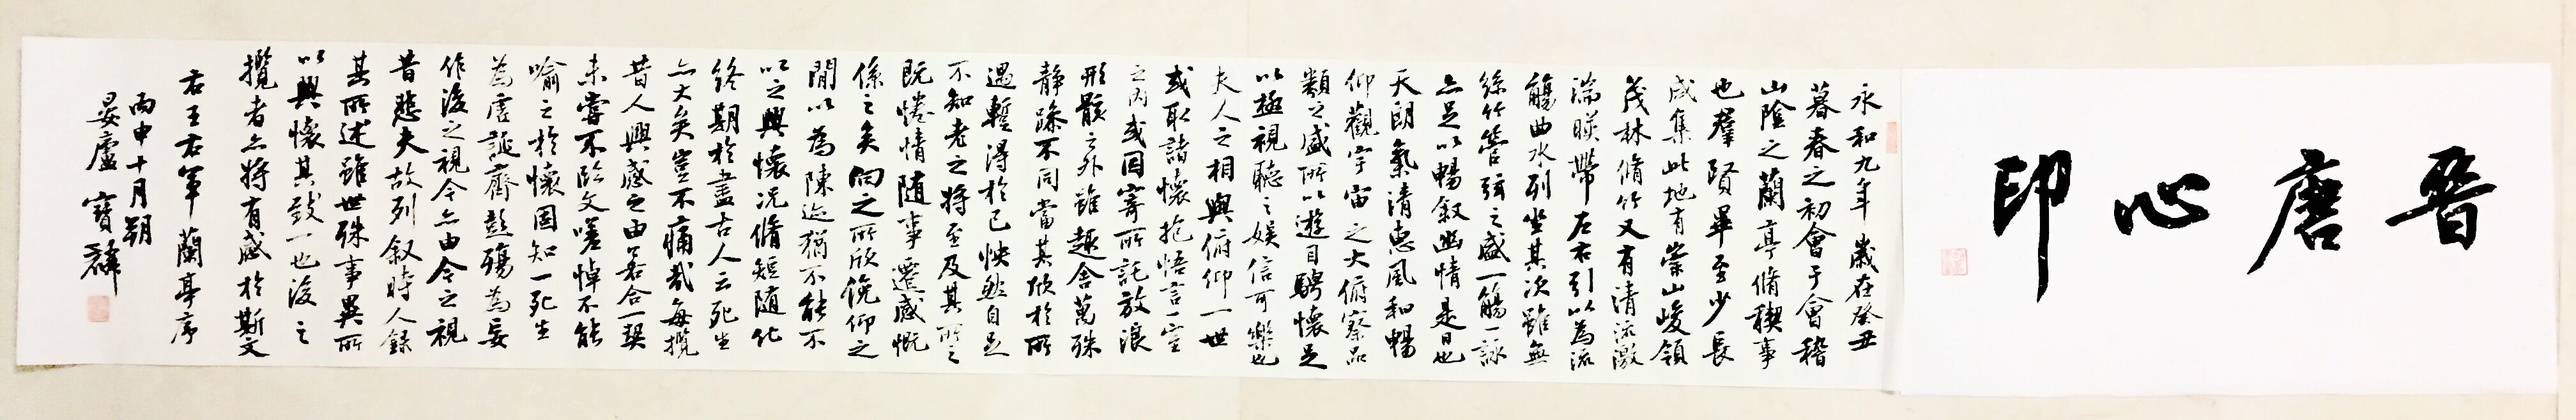 晋唐心印
永和九年歲在癸丑
暮春之初會于會稽
山陰之蘭亭脩稧事
也羣賢畢至少長
咸集此地有崇山峻領
茂林脩竹又有清流激
湍暎帶左右引以為流
觴曲水列坐其次雖無
絲竹管弦之盛一觴一詠
亦足以暢叙幽情是日也
天朗氣清惠風和暢
仰觀宇宙之大俯察品
類之盛所以遊目騁懷足
以極視聽之娛信可樂也
夫人之相與俯仰一世
或取諸懷抱悟言一室
之內或因寄所託放浪
形骸之外雖趣舍萬殊
靜躁不同當其欣於所
遇暫得於己怏然自足
不知老之將至及其所之
既惓情隨事遷感慨
係之矣向之所欣俛仰之
閒以為陳迹猶不能不
以之興懷況脩短隨化
終期於盡古人云死生
亦大矣豈不痛哉每攬
昔人興感之由若合一契
未嘗不臨文嗟悼不能
喻之於懷固知一死生
為虛誕齊彭殤為妄
作後之視今亦由今之視
昔悲夫故列叙時人錄
其所述雖世殊事異所
以興懷其致一也後之
攬者亦將有感於斯文
右王右軍蘭亭序
丙申十月朔
晏廬寶麟